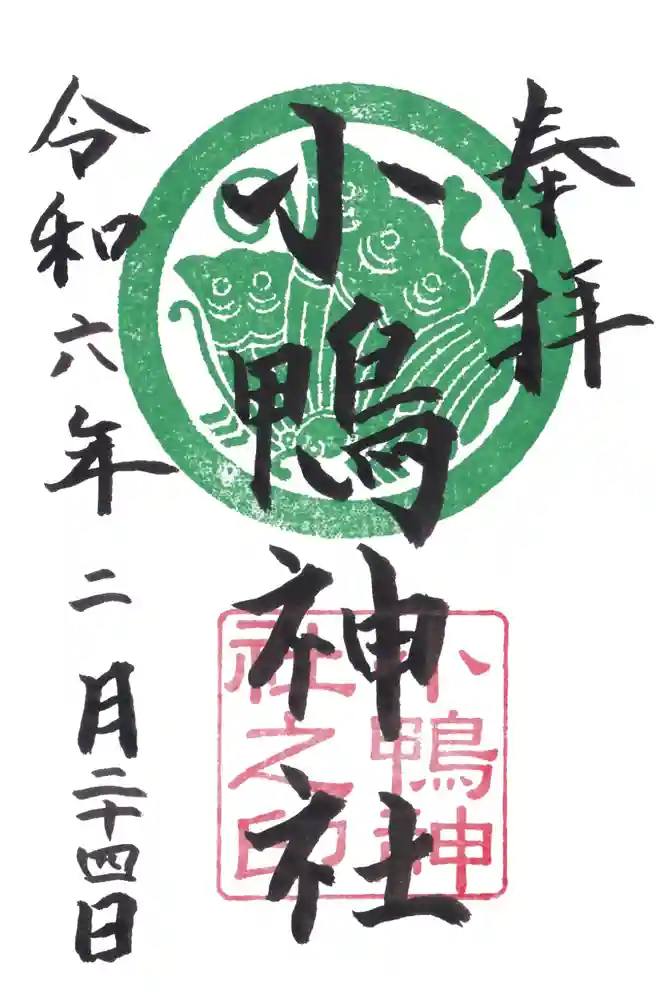 奉拝
小鴨神社
小鴨神
社之印
令和六年二月二十四日